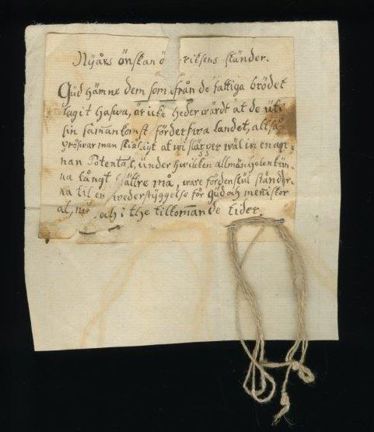 Nyårs önskan ö ritsens ständer.
Gud hämne dem som från de fattiga brödet
tagit hafwa, at icke heder wärdt at de utj
sin samankomst förderfwa landet, altså
pröfwar man skiäligt at wi slipper wäl in en an-
nan Potentat, under hwilken allmän
na långt bättre må, ware fördenskul ständer-
na til en wederstyggelse för gud och menniskor
at, nu och i the tilkomande tider.